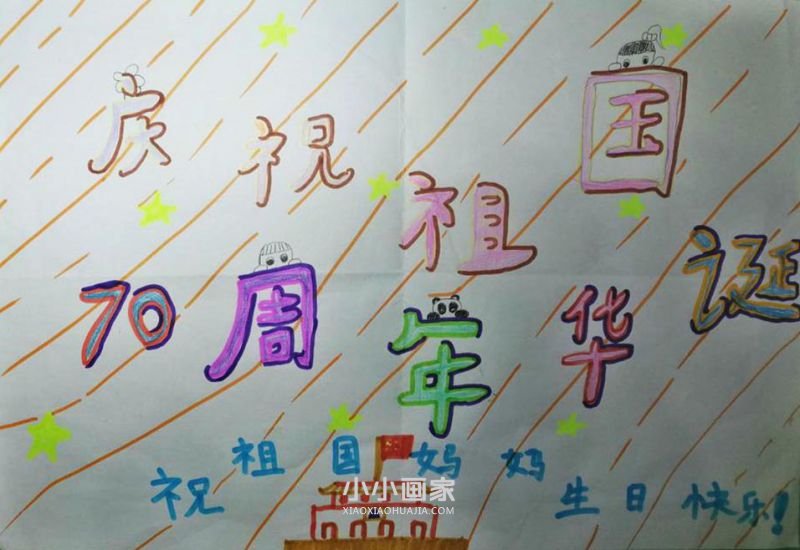 庆祝祖国
70周年华诞
祝祖国妈妈生日快乐!
小小画家
XIAOXIAOHUAJIA.COM